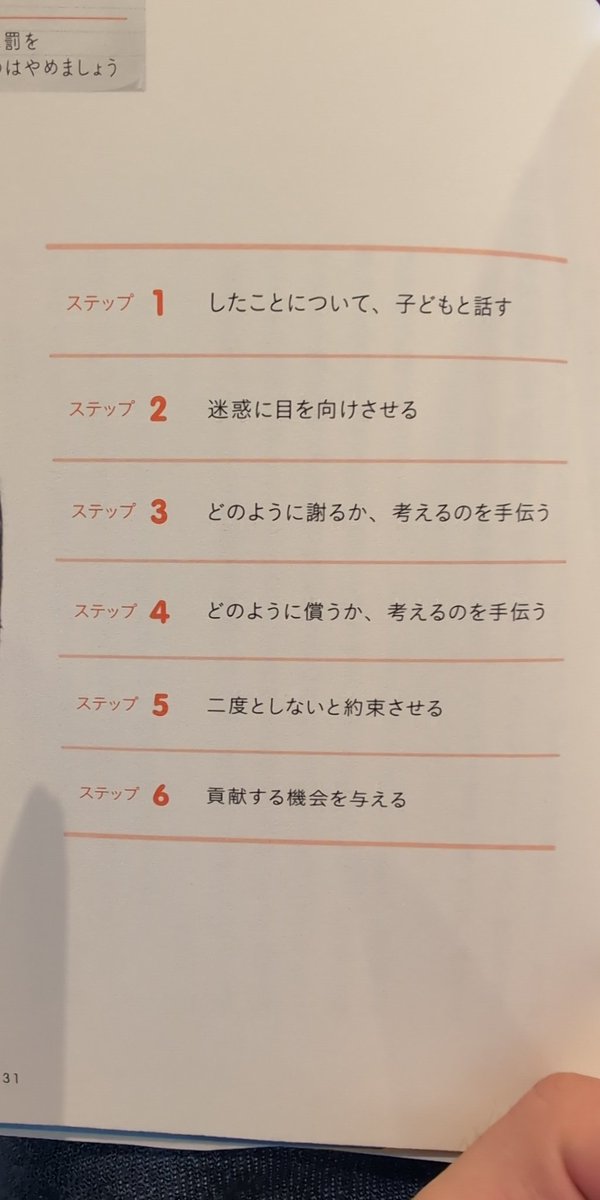 罰を
のはやめましょう
ステップ 1 したことについて、子どもと話す
ステップ 2 迷惑に目を向けさせる
ステップ 3 どのように謝るか、考えるのを手伝う
ステップ 4 どのように償うか、考えるのを手伝う
ステップ 5 二度としないと約束させる
ステップ 6 貢献する機会を与える
31